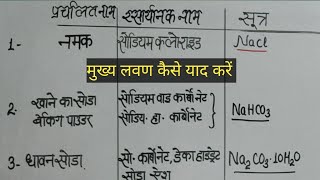 प्रचलित नाम रसायनिक नाम सूत्र
1- नमक सोडियम क्लोराइड NaCl
मुख्य लवण कैसे याद करें
2. खाने का सोडा सोडियम बाइ कार्बोनेट
बेकिंग पाउडर सोडि. हा. कार्बोनेट NaHCO3
3- धावन सोडा सो. कार्बोनेट, डेका हाइड्रेट Na2CO3·10H2O
सोडा